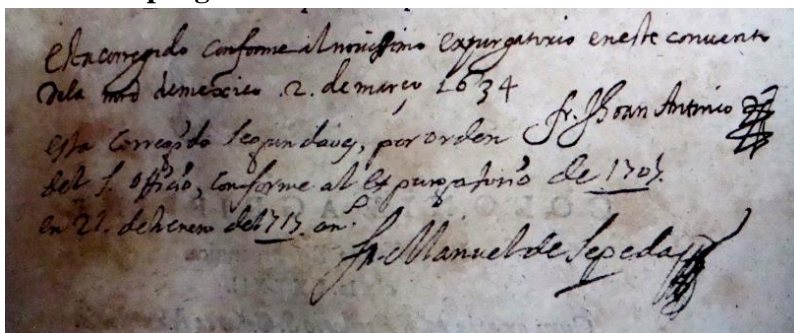 esta corregido conforme al novissimo expurgatorio en este convento
dela mrd de mexico .2. de março 1634
fr. Jhoan Antonio
esta Correg.do segunda vez, por orden
del S. officio, conforme al expurgatorio de 1707.
en 21. de henero del 1715 an.s
fr. Manuel de Sepeda